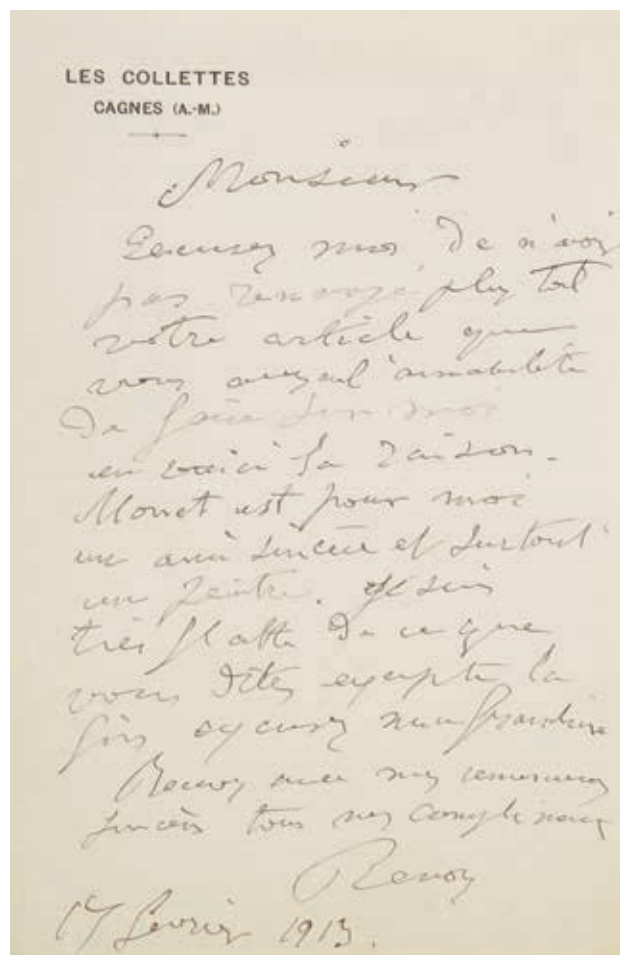 LES COLLETTES
CAGNES (A.-M.)
Monsieur
Excusez moi de n'avoir
pas renvoyé plus tot
votre article que
vous avez eu l'amabilité
de faire sur moi
en voici la raison.
Monet est pour moi
un ami sincère et surtout
un peintre. Je suis
très flatté de ce que
vous dites excepté la
fin excusez ma franchise
Recevez avec mes remerciements
sincères tous mes compliments
Renoir
17 février 1913.